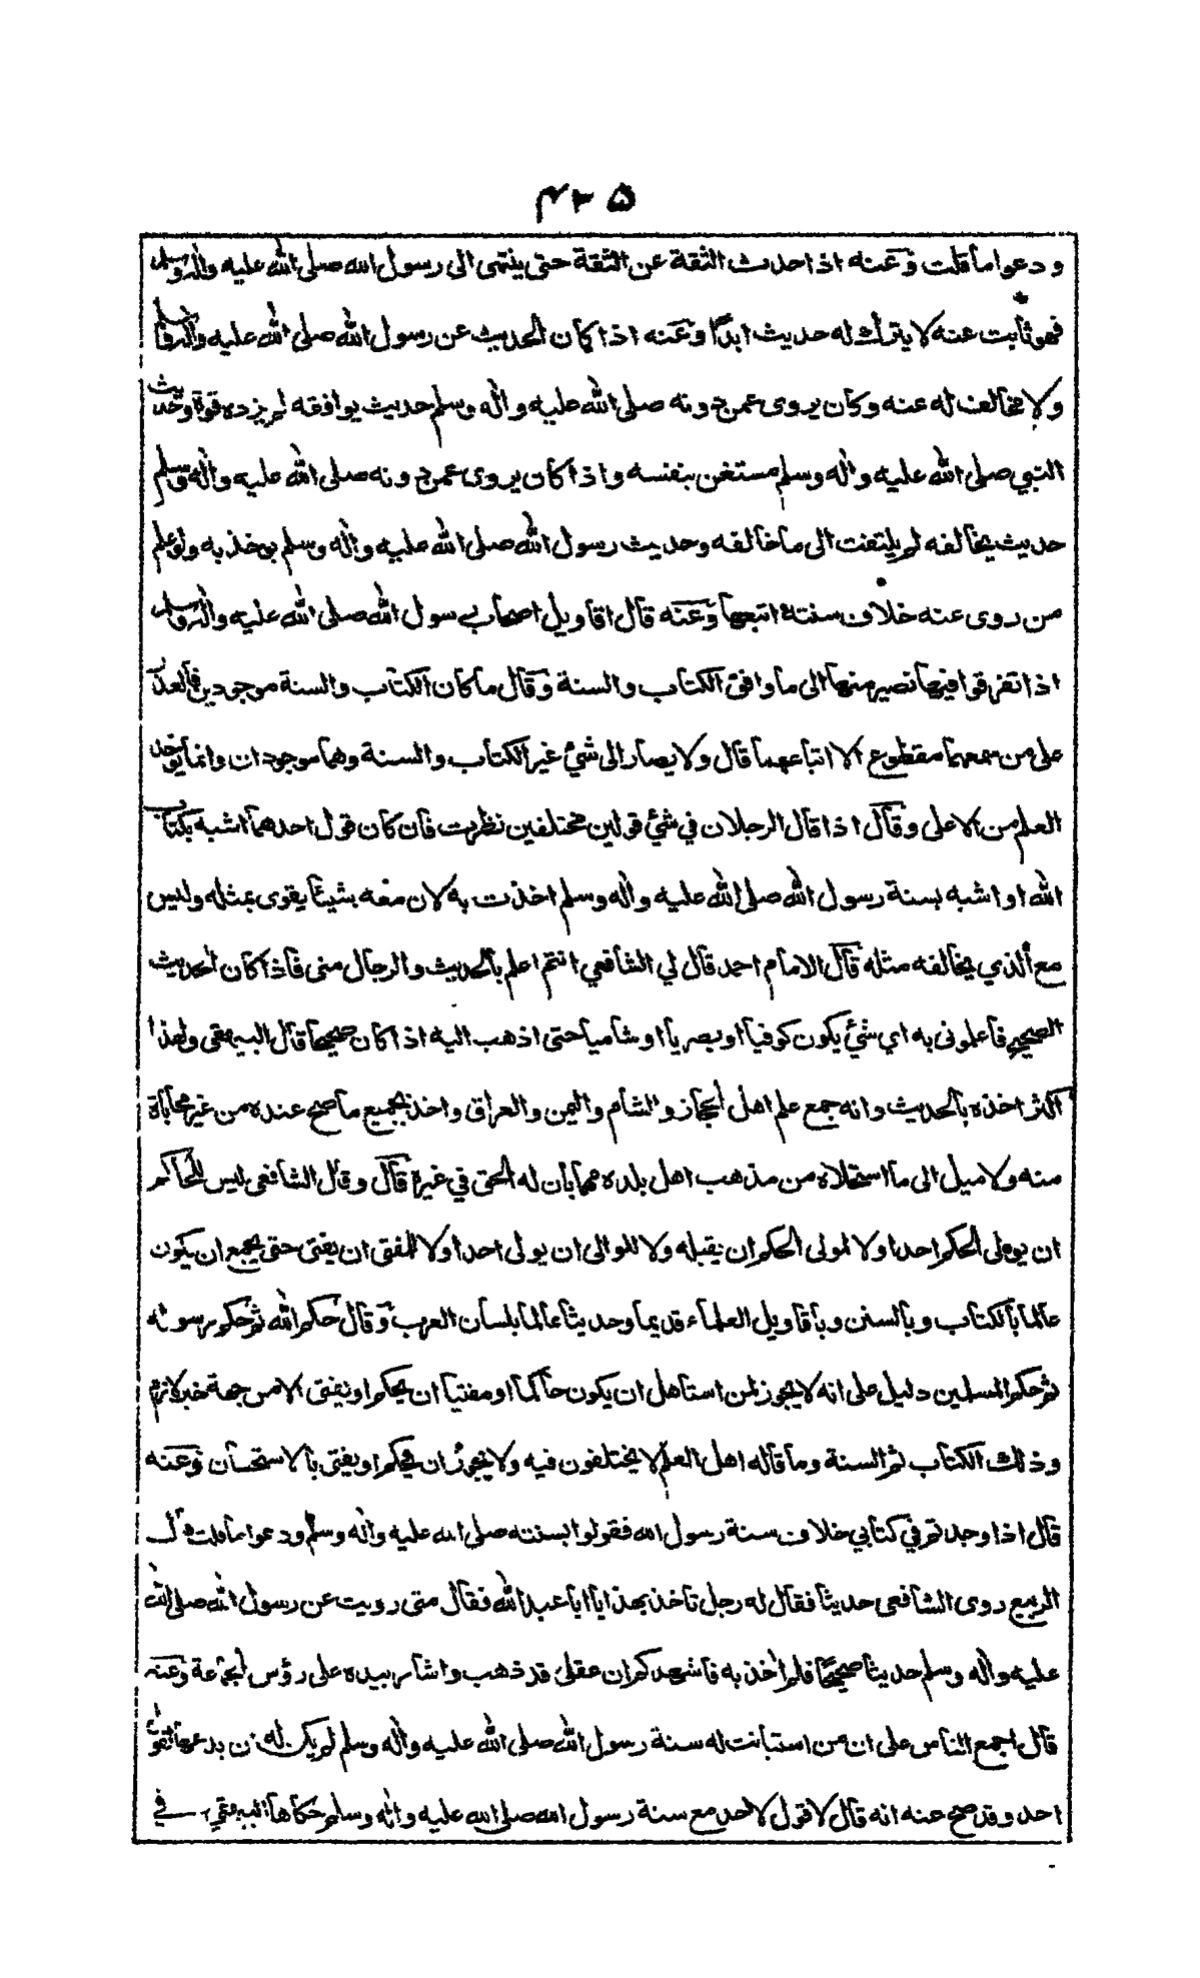 ۴۳۵
ودعوا ما قلت وعنه اذا حدث الثقة عن الثقة حتى ينتهى الى رسول الله صلى الله عليه واله وسلم
فهو ثابت عنه لا يترك له حديث ابدًا وعنه اذا كان الحديث عن رسول الله صلى الله عليه واله وسلم
ولا مخالف له عنه وكان يروى عمن دونه صلى الله عليه واله وسلم حديث يوافقه لم يزده قوة وحديث
النبي صلى الله عليه واله وسلم مستغن بنفسه واذا كان يروى عمن دونه صلى الله عليه واله وسلم
حديث يخالفه لم يلتفت الى ما خالفه وحديث رسول الله صلى الله عليه واله وسلم يوخذ به ولو علم
من روى عنه خلاف سنته اتبعها وعنه قال اقاويل اصحاب رسول الله صلى الله عليه واله وسلم
اذا تفرقوا فيها نصير منها الى ما وافق الكتاب والسنة وقال ما كان الكتاب والسنة موجودين فالعذر
على من سمعهما مقطوع الا اتباعهما قال ولا يصار الى شئ غير الكتاب والسنة وهما موجودان وانما يوخذ
العلم من الاعلى وقال اذا قال الرجلان في شئ قولين مختلفين نظرت فان كان قول احدهما اشبه بكتاب
الله او اشبه بسنة رسول الله صلى الله عليه واله وسلم اخذت به لان معه شيئا يقوى بمثله وليس
مع الذي يخالفه مثله قال الامام احمد قال لي الشافعي انتم اعلم بالحديث والرجال منى فاذا كان الحديث
الصحيح فاعلمونى به اي شئ يكون كوفيا او بصريا او شاميا حتى اذهب اليه اذا كان صحيحا قال البيهقى ولهذا
اكثر اخذه بالحديث وانه جمع علم اهل الحجاز والشام واليمن والعراق واخذ بجميع ما صح عنده من غير محاباة
منه ولا ميل الى ما استحلاه من مذهب اهل بلده مهما بان له الحق في غيره قال وقال الشافعى ليس للحاكم
ان يولى الحكم احدا ولا لمولى الحكم ان يقبله ولا للوالى ان يولى احدا ولا للمفتى ان يفتى حتى يجمع ان يكون
عالما بالكتاب وبالسنن وباقاويل العلماء قديما وحديثا عالما بلسان العرب وقال حكم الله ثم حكم رسوله
ثم حكم المسلمين دليل على انه لا يجوز لمن استاهل ان يكون حاكما او مفتيا ان يحكم او يفتى الا من جهة خبر لازم
وذلك الكتاب ثم السنة وما قاله اهل العلم لا يختلفون فيه ولا يجوز ان يحكم او يفتى بالاستحسان وعنه
قال اذا وجدتم في كتابي خلاف سنة رسول الله فقولوا بسنته صلى الله عليه واله وسلم ودعوا ما قلت قال
الربيع روى الشافعى حديثا فقال له رجل تاخذ بهذا يا ابا عبد الله فقال متى رويت عن رسول الله صلى الله
عليه واله وسلم حديثا صحيحًا فلم اٰخذ به فاشهدكم ان عقلى قد ذهب واشار بيده على رؤس الجماعة وعنه
قال اجمع الناس على ان من استبانت له سنة رسول الله صلى الله عليه واله وسلم لم يكن له ان يدعها لقول
احد وقد صح عنه انه قال لا قول لاحد مع سنة رسول الله صلى الله عليه واله وسلم حكاها البيهقي في